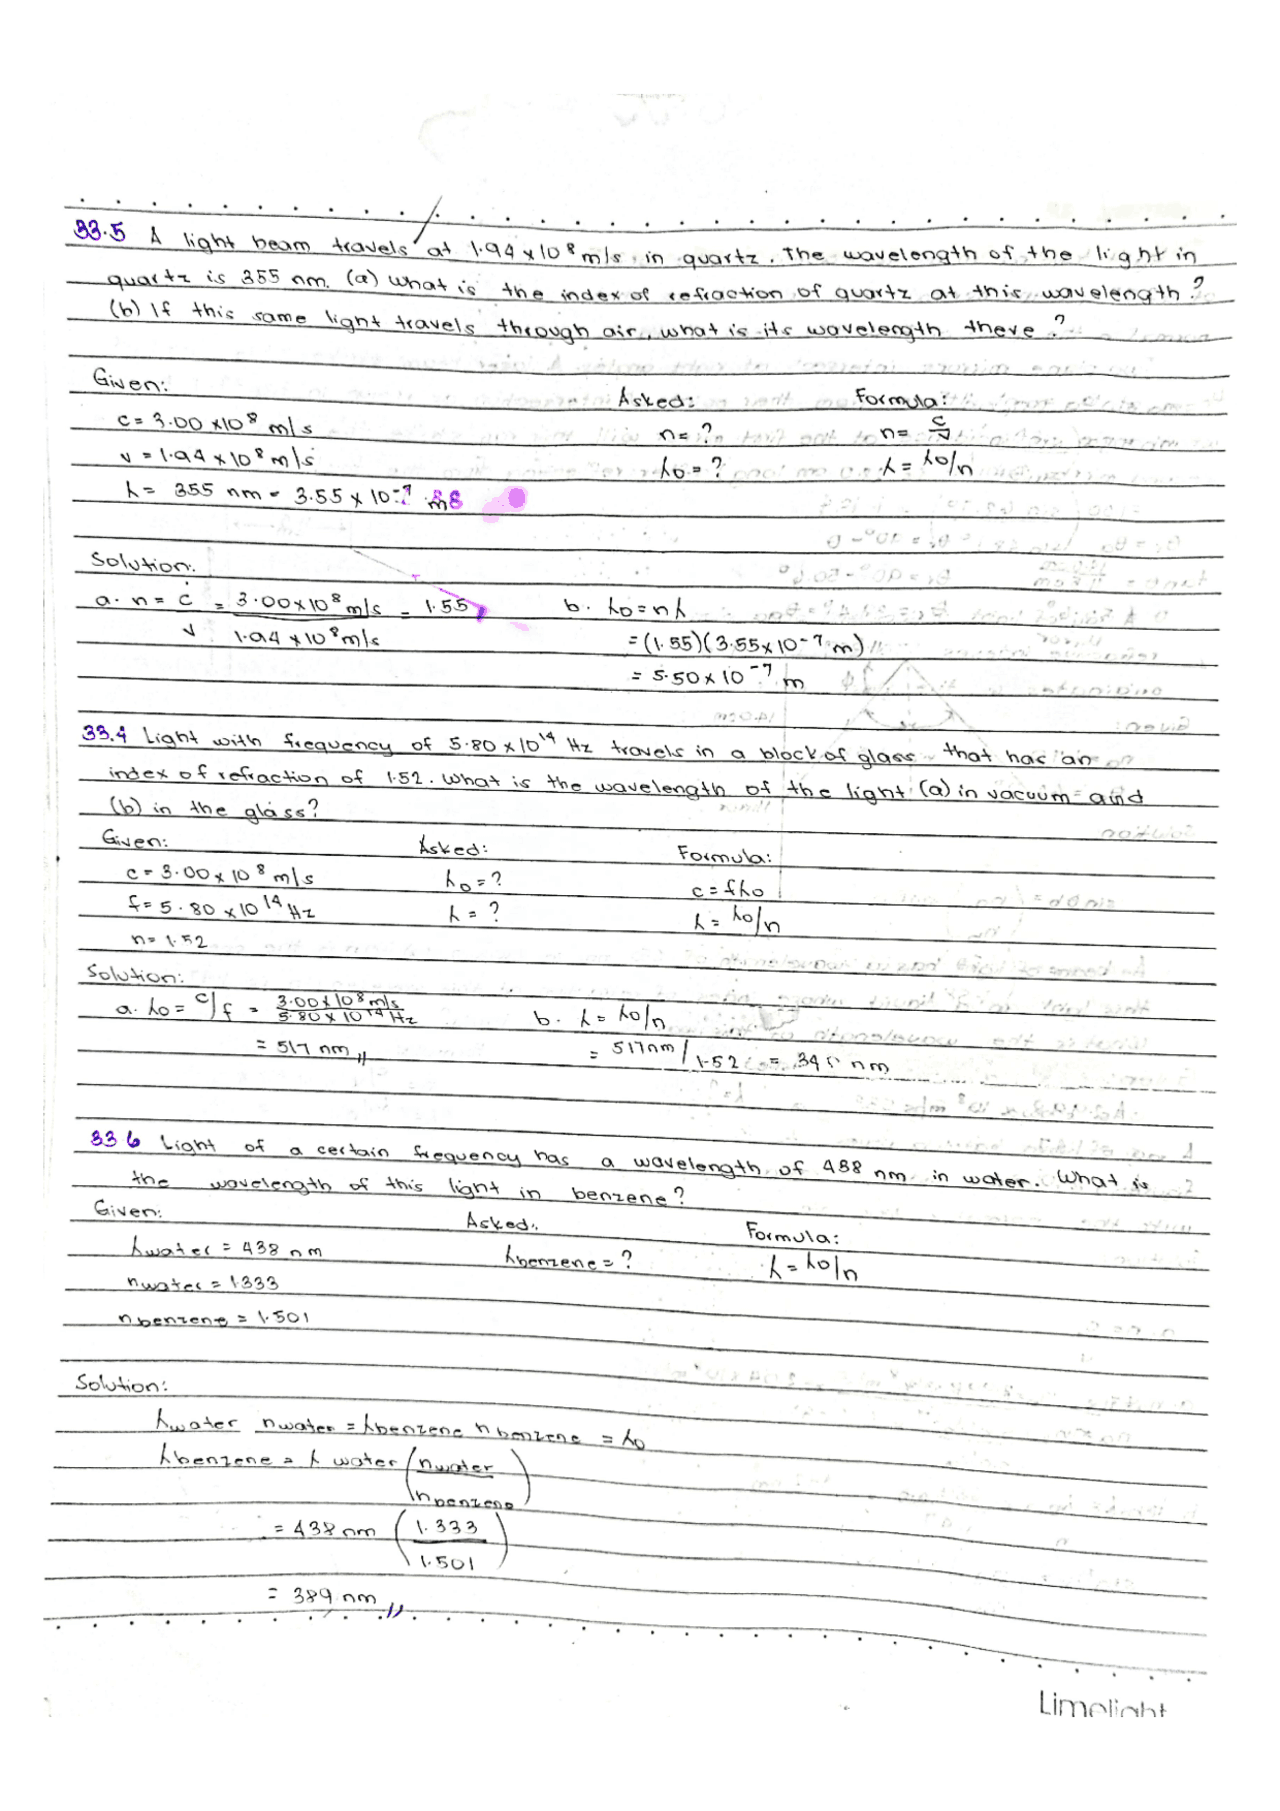 33.5 A light beam travels at 1.94 x 10⁸ m/s in quartz. The wavelength of the light in
quartz is 355 nm. (a) What is the index of refraction of quartz at this wavelength?
(b) If this same light travels through air, what is its wavelength there?
Given: Asked: Formula:
c = 3.00 x 10⁸ m/s n = ? n = c/v
v = 1.94 x 10⁸ m/s λ0 = ? λ = λ0/n
λ = 355 nm = 3.55 x 10⁻⁷ m
Solution:
a. n = c/v = 3.00 x 10⁸ m/s / 1.94 x 10⁸ m/s = 1.55 b. λ0 = nλ
= (1.55)(3.55 x 10⁻⁷ m)
= 5.50 x 10⁻⁷ m
33.4 Light with frequency of 5.80 x 10¹⁴ Hz travels in a block of glass that has an
index of refraction of 1.52. What is the wavelength of the light (a) in vacuum and
(b) in the glass?
Given: Asked: Formula:
c = 3.00 x 10⁸ m/s λ0 = ? c = fλ0
f = 5.80 x 10¹⁴ Hz λ = ? λ = λ0/n
n = 1.52
Solution:
a. λ0 = c/f = 3.00 x 10⁸ m/s / 5.80 x 10¹⁴ Hz b. λ = λ0/n
= 517 nm // = 517 nm / 1.52 = nm
33 6 Light of a certain frequency has a wavelength of 438 nm in water. What is
the wavelength of this light in benzene?
Given: Asked: Formula:
λwater = 438 nm λbenzene = ? λ = λ0/n
nwater = 1.333
nbenzene = 1.501
Solution:
λwater nwater = λbenzene nbenzene = λ0
λbenzene = λ water (nwater / nbenzene)
= 438 nm (1.333 / 1.501)
= 389 nm //
Limelight